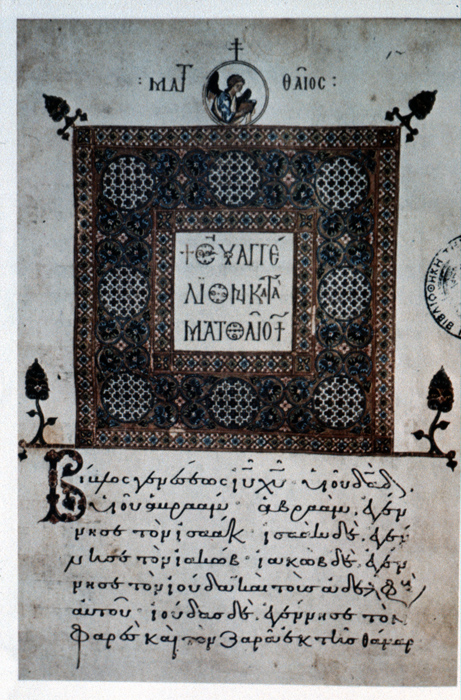 : ΜΑΤ ΘΑῖΟC :
+ ΕΥΑΓΓΕ
ΛΙΟΝ ΚΑΤΑ
ΜΑΤΘΑῖΟΝ
Βίβλος γενέσεως ἰῦ χῦ υἱοῦ δαδ
υἱοῦ ἀβραάμ· ἀβραὰμ ἐγέν
νησε τὸν ἰσαάκ· ἰσαὰκ δὲ ἐγέν
νησε τὸν ἰακώβ· ἰακὼβ δὲ ἐγέν
νησε τὸν ἰούδαν καὶ τοὺς ἀδελφοὺς
αὐτοῦ· ἰούδας δὲ ἐγέννησε τὸν
φαρὲς καὶ τὸν ζαρὰ ἐκ τῆς θάμαρ
ΒΙΒΛΙΟΘΗΚΗ